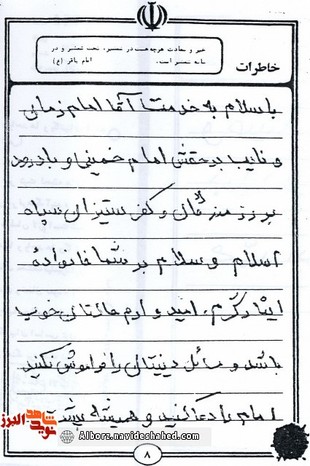 خیر و سعادت هرچه هست در شمشیر، تحت شمشیر و در
سایه شمشیر است.
امام باقر (ع)
خاطرات
باسلام به خدمت آقا امام زمان
و نایب برحقش امام خمینی و با درود
بر رزمندگان و کفر ستیزان سپاه
اسلام و سلام بر شما خانواده
ایثارگرم، امیدوارم حالتان خوب
باشد و مسائل دینیتان را فراموش نکنید
امام را دعا کنید و همیشه پشت
نوید شاهد البرز
Alborz.navideshahed.com
۸